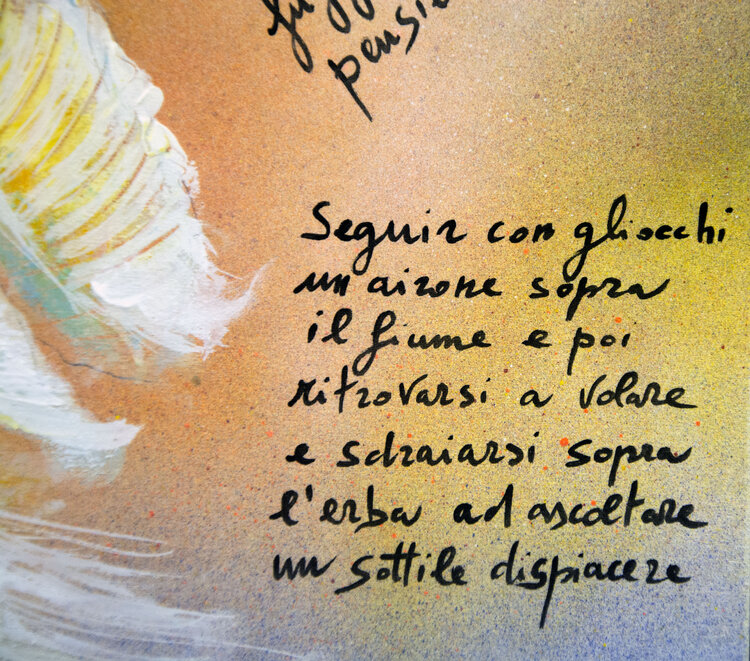 Seguir con gliocchi
un airone sopra
il fiume e poi
ritrovarsi a volare
e sdraiarsi sopra
l'erba ad ascoltare
un sottile dispiacere